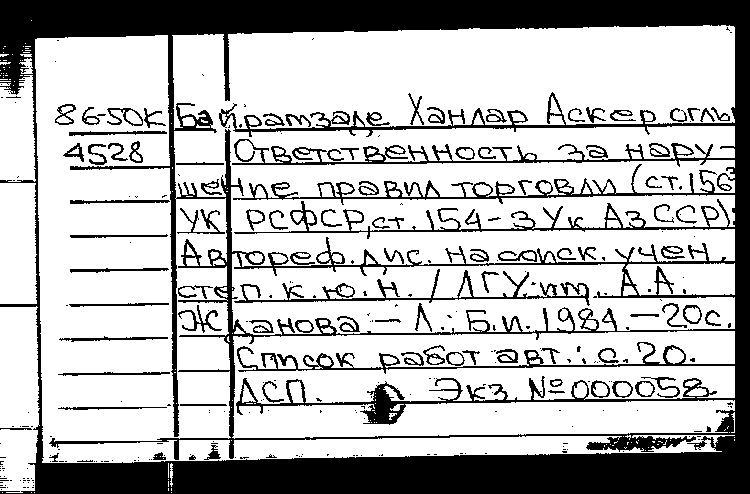 86-50К Байрамзаде Ханлар Аскер оглы
4528 Ответственность за нару-
шение правил торговли (ст.156³
УК РСФСР,ст.154-3 Ук Аз ССР):
Автореф.дис. на соиск. учен.
степ. к.ю.н. / ЛГУ им. А.А.
Жданова.- Л.: Б.и.,1984.-20с.
Список работ авт.: с.20.
ДСП. Экз. №000058.